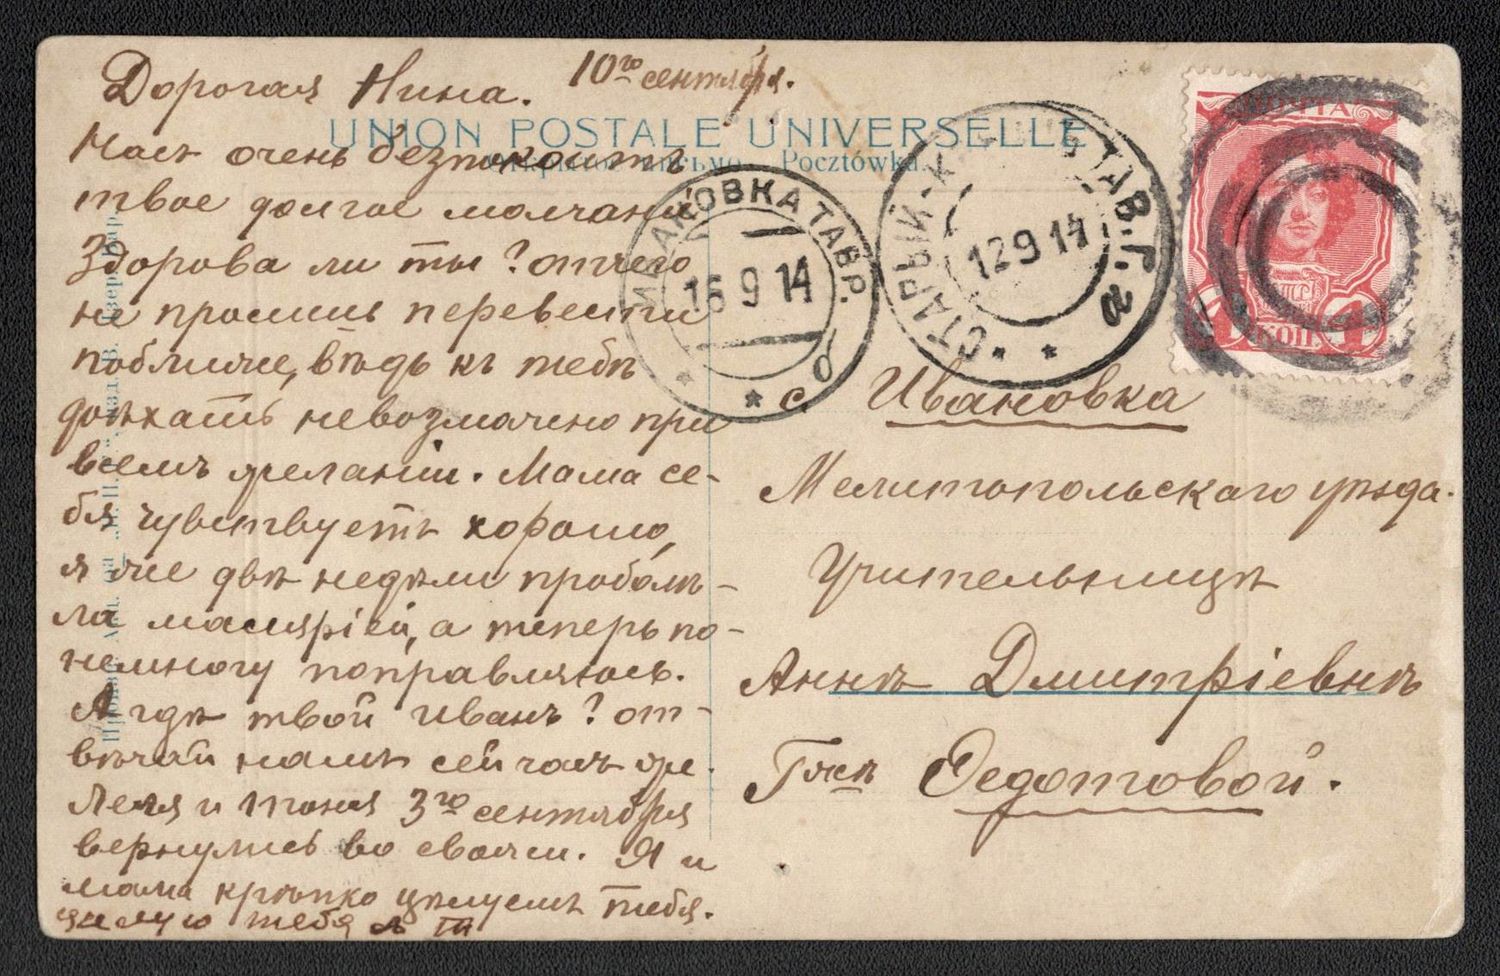 Дорогая Нина. 10го сентября.
UNION POSTALE UNIVERSELLE
письмо. Pocztówka.
Насъ очень безпокоитъ
твое долгое молчание
Здорова ли ты? отчего
не просишь перевести
поближе, вѣдь къ тебѣ
доѣхать невозможно при
всемъ желаніи. Мама се-
бя чувствуетъ хорошо,
я же двѣ недѣли проболѣ-
ла малярiей, а теперь по-
немногу поправляюсь.
А гдѣ твой Иванъ? от-
вѣчай намъ сейчасъ же.
Леля и Тоня 3го сентября
вернулись во свояси. Я и
мама крѣпко цѣлуемъ тебя.
цѣлую тебя
ТАВР.
16 9 14
б
СТАРЫЙ-К ТАВ.Г.
12 9 14
а
ПОЧТА
1 КОП. 1
с. Ивановка
Мелитопольскаго уѣзда.
Учительницѣ
Аннѣ Дмитрiевнѣ
Гжѣ Федотовой.